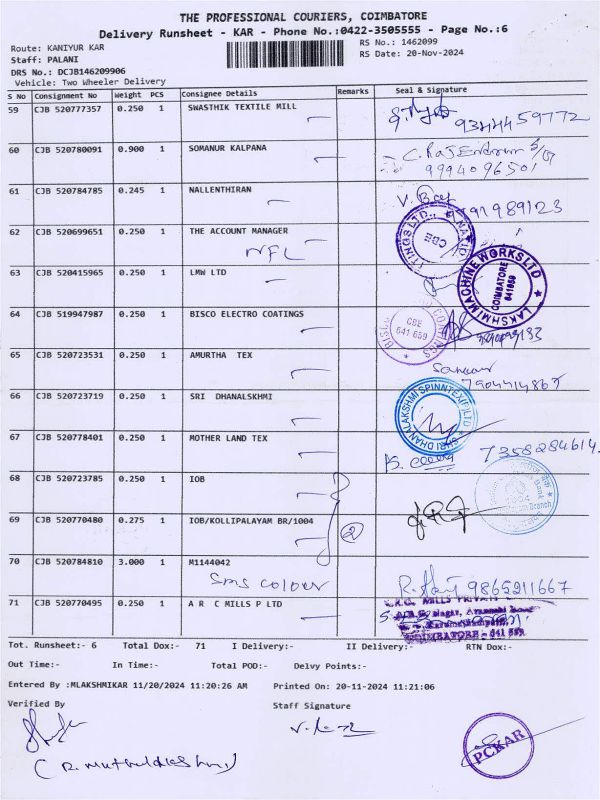 THE PROFESSIONAL COURIERS, COIMBATORE
Delivery Runsheet - KAR - Phone No.:0422-3505555 - Page No.:6
Route: KANIYUR KAR
RS No.: 1462099
Staff: PALANI
RS Date: 20-Nov-2024
DRS No.: DCJB146209906
Vehicle: Two Wheeler Delivery
S No Consignment No Weight PCS Consignee Details Remarks Seal & Signature
59 CJB 520777357 0.250 1 SWASTHIK TEXTILE MILL
9344459772
60 CJB 520780091 0.900 1 SOMANUR KALPANA
C. Rajendran
9994096501
61 CJB 520784785 0.245 1 NALLENTHIRAN
62 CJB 520699651 0.250 1 THE ACCOUNT MANAGER
NFL
CBE
63 CJB 520415965 0.250 1 LMW LTD
LAKSHMI MACHINE WORKS LTD
COIMBATORE
641659
64 CJB 519947987 0.250 1 BISCO ELECTRO COATINGS
CBE
641 659
65 CJB 520723531 0.250 1 AMURTHA TEX
7904414867
66 CJB 520723719 0.250 1 SRI DHANALSKHMI
67 CJB 520778401 0.250 1 MOTHER LAND TEX
7358284614.
68 CJB 520723785 0.250 1 IOB
69 CJB 520770480 0.275 1 IOB/KOLLIPALAYAM BR/1004
2
70 CJB 520784810 3.000 1 M1144042
sms colour
9865211667
71 CJB 520770495 0.250 1 A R C MILLS P LTD
COIMBATORE - 641 659
Tot. Runsheet:- 6 Total Dox:- 71 I Delivery:- II Delivery:- RTN Dox:-
Out Time:- In Time:- Total POD:- Delvy Points:-
Entered By :MLAKSHMIKAR 11/20/2024 11:20:26 AM Printed On: 20-11-2024 11:21:06
Verified By Staff Signature
(R. Muthulakshmi)
PCKAR